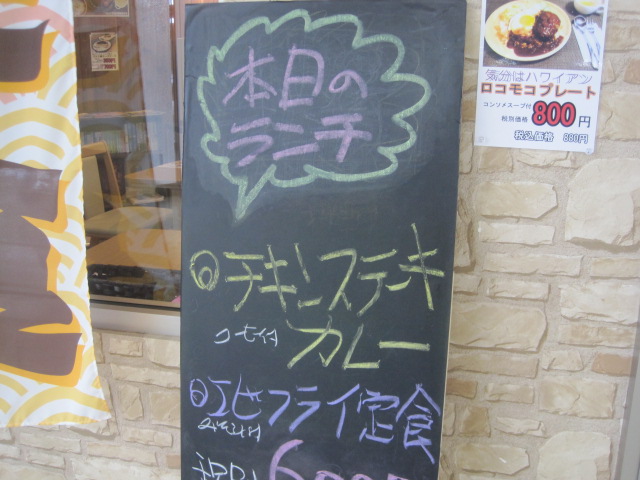 本日の
ランチ
日チキンステーキ
カレー
日エビフライ定食
税別
気分はハワイアン
ロコモコプレート
コンソメスープ付
税別価格 800円
税込価格 880円